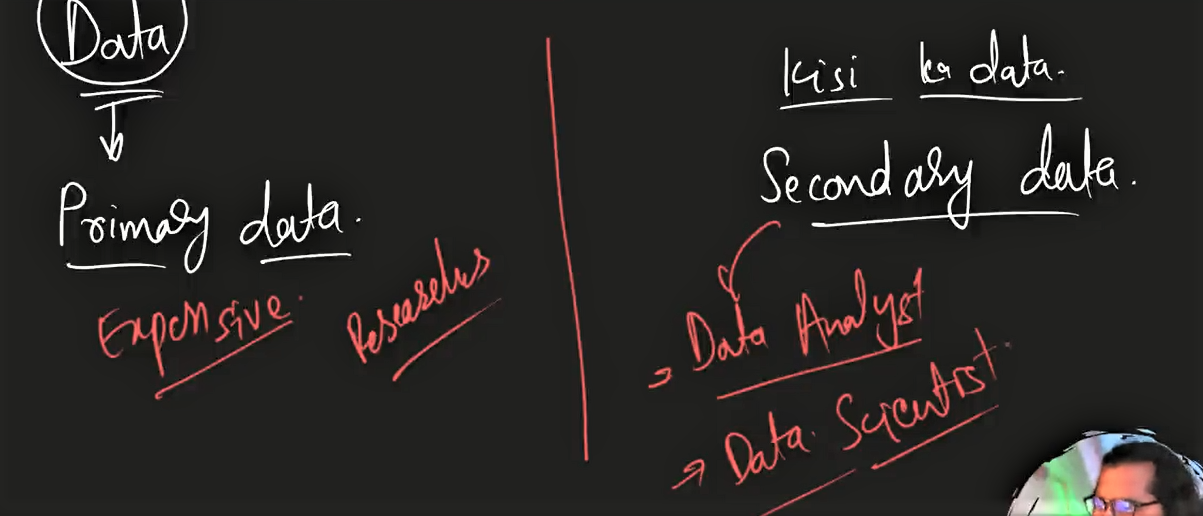 Data
Primary data.
Expensive.
Researchers
Kisi ka data.
Secondary data.
Data Analyst
Data Scientist.